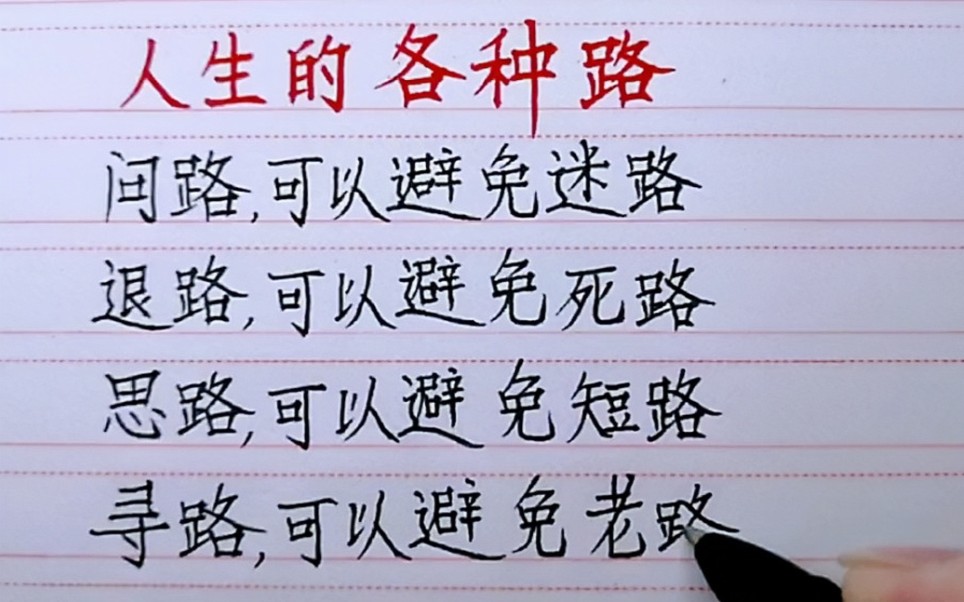 人生的各种路
问路,可以避免迷路
退路,可以避免死路
思路,可以避免短路
寻路,可以避免老路